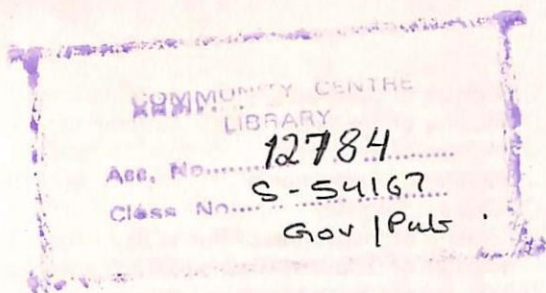 COMMUNITY CENTRE
LIBRARY
Acc. No....... 12784 ..........
Class No.... S-54167 .....
Gov | Pub .